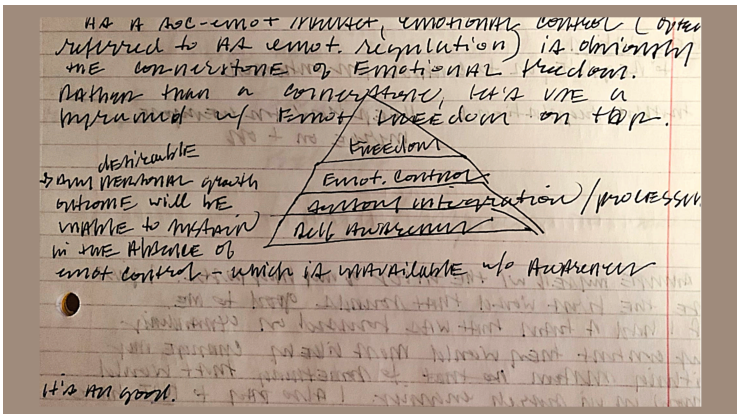 As a soc-emot construct, emotional control (often
referred to as emot. regulation) is obviously
the cornerstone of Emotional freedom.
Rather than a cornerstone, let's use a
pyramid w/ Emot Freedom on top.
Freedom
Emot. Control
integration/processing
Self Awareness
desirable
→ Any personal growth
outcome will be
unable to sustain
in the absence of
emot control - which is unavailable w/o Awareness
It's all good.